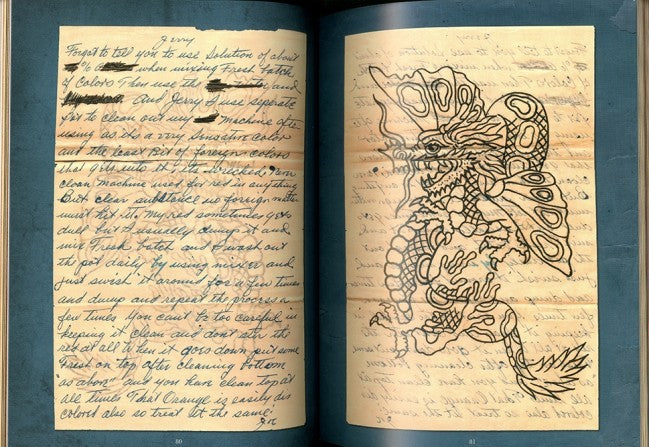 Jerry
Forgot to tell you to use Solution of about
% when mixing Fresh batch
of Colors Then use the and
And Jerry I use seperate
to clean out my machine after
using as its a very Sensative Color
and the least Bit of foreign colors
that gets into it, its wrecked Never
clean machine used for red in anything
But clear substance no foreign matter
must hit it. My red sometimes gets
dull but I usually dump it and
mix Fresh batch and I wash out
the pot daily by using mixer and
just swish it around for a few times
and dump and repeat the process a
few times You cant be too careful in
keeping it clean and dont stir the
red at all when it goes down put some
Fresh on top after cleaning bottom
"as above" and you have clean top at
all times That Orange is easily dis
colored also so treat it the same.
80
81